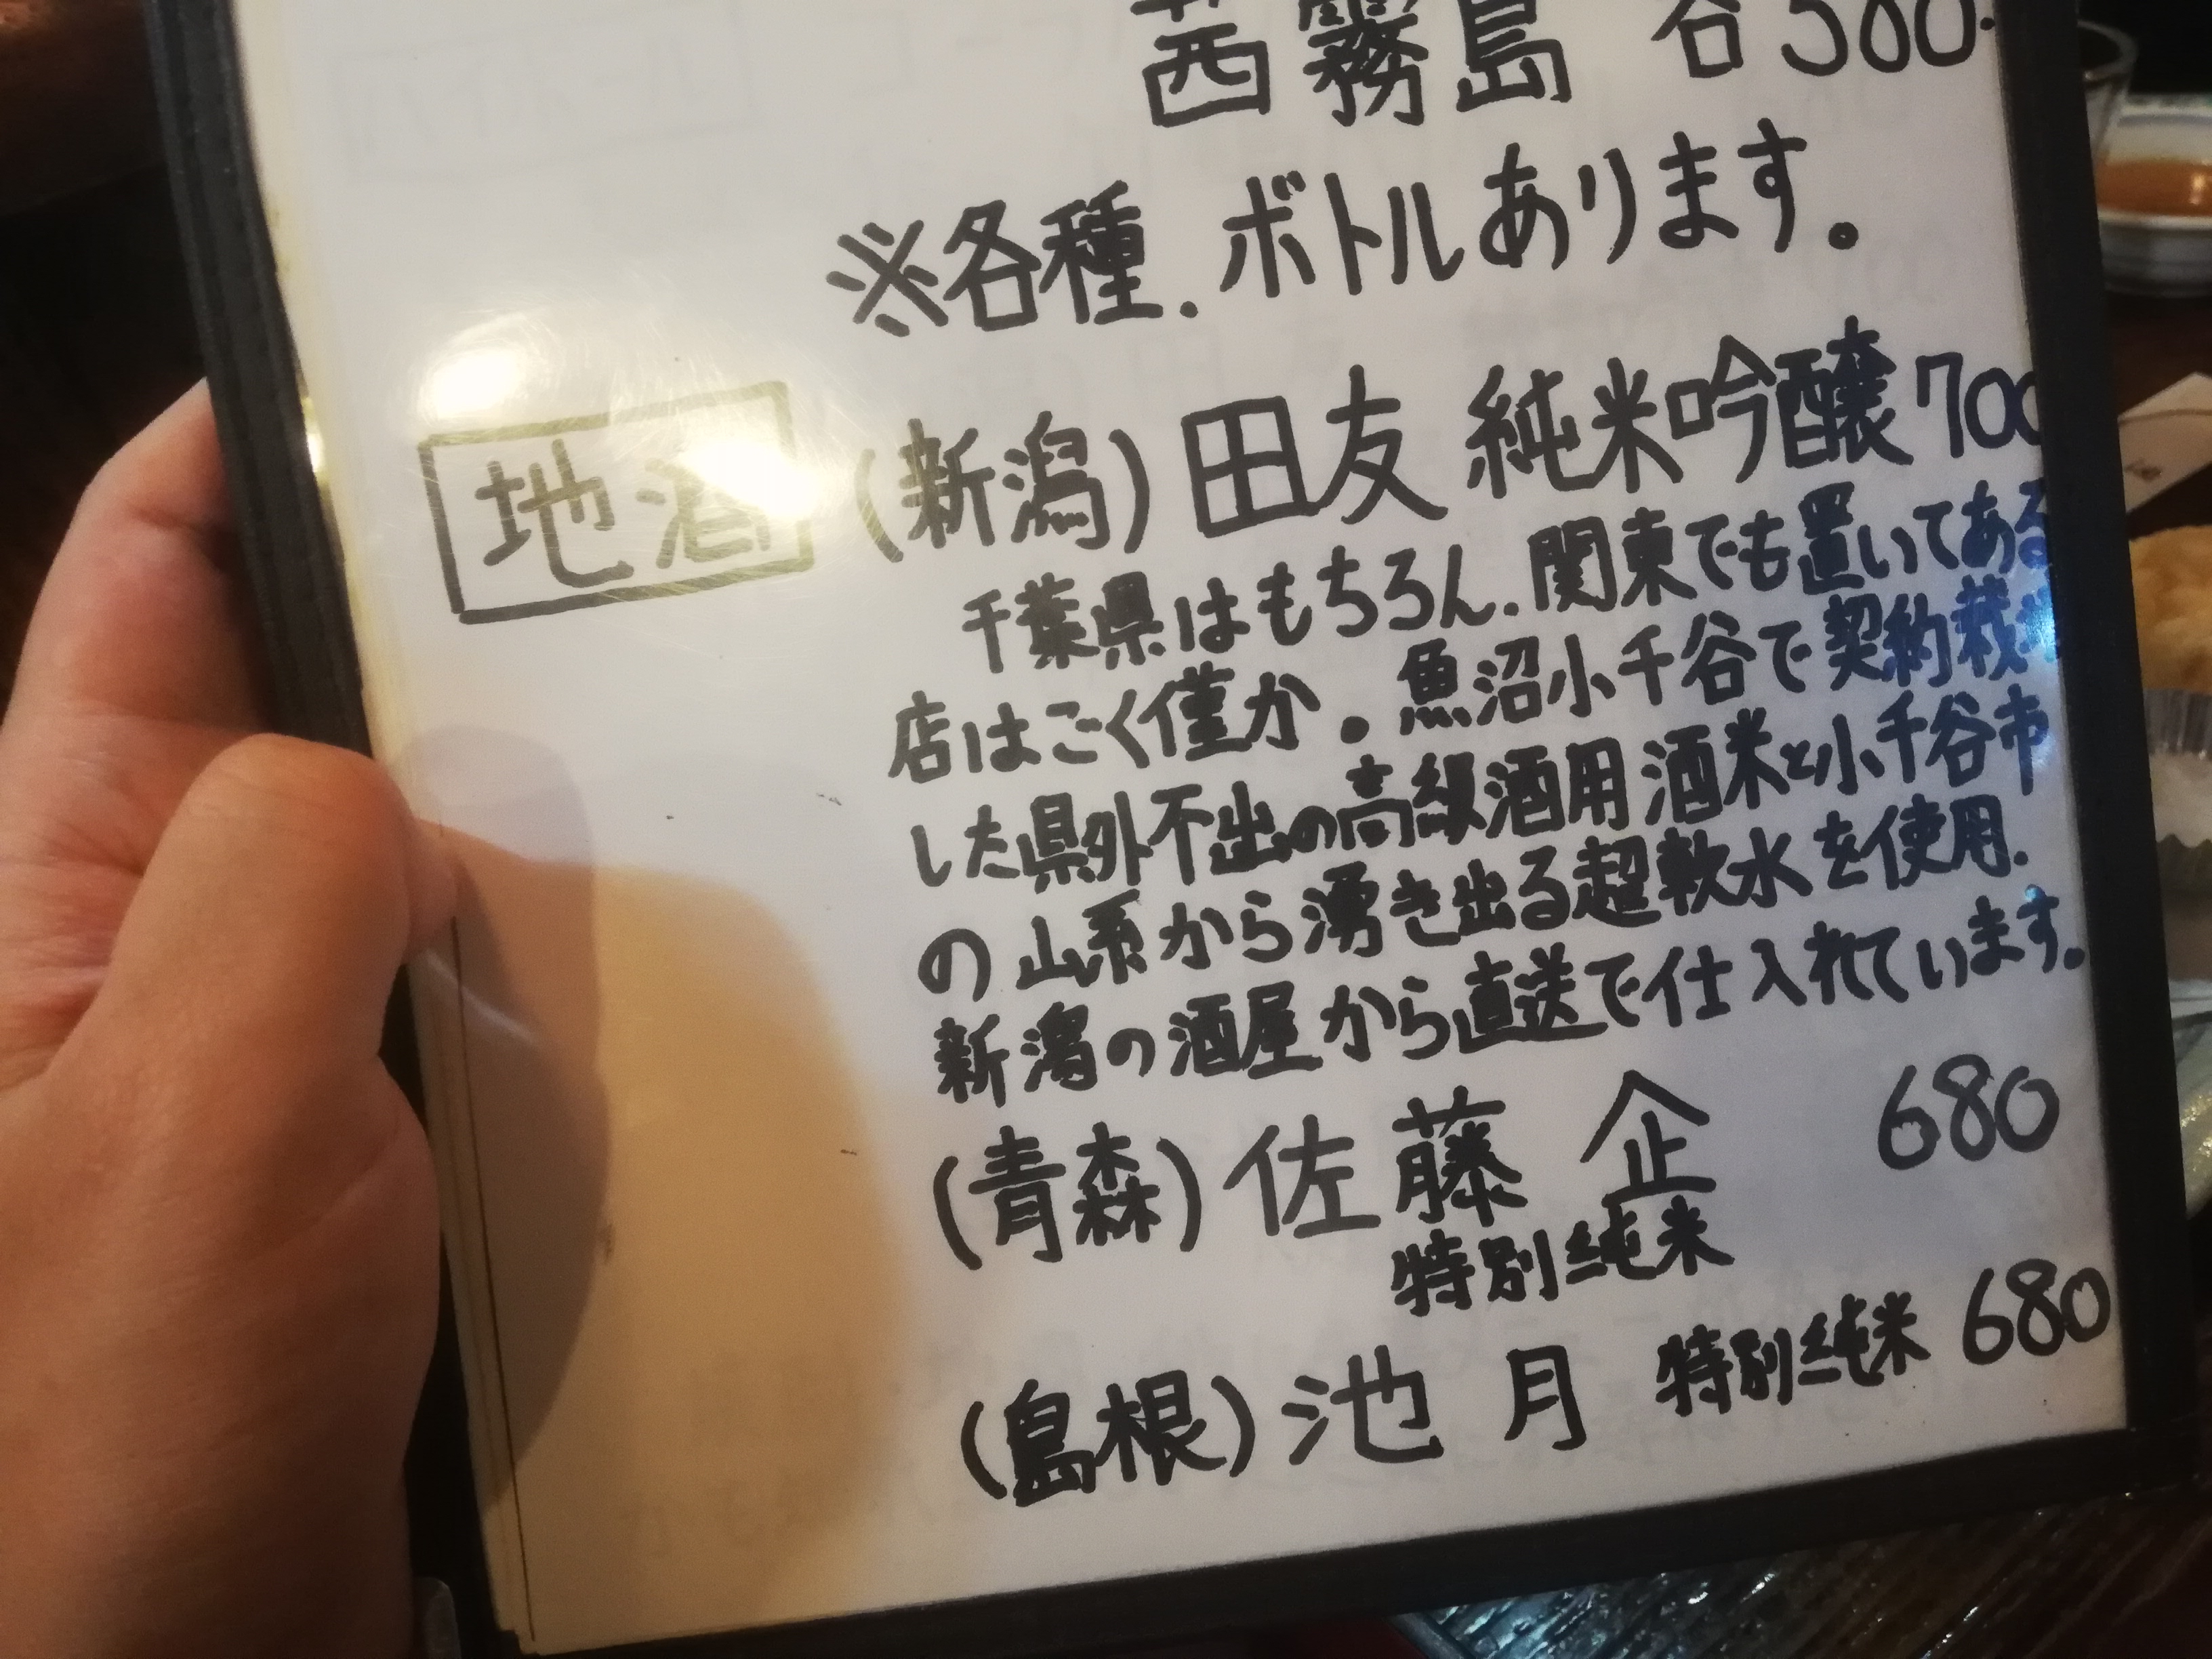 茜霧島 各500.
※各種.ボトルあります。
地酒 (新潟) 田友 純米吟醸 700
千葉県はもちろん.関東でも置いてある
店はごく僅か。魚沼小千谷で契約栽培
した県外不出の高級酒用酒米と小千谷市
の山系から湧き出る超軟水を使用.
新潟の酒屋から直送で仕入れています。
(青森) 佐藤企 680
特別純米
(島根) 池月 特別純米 680